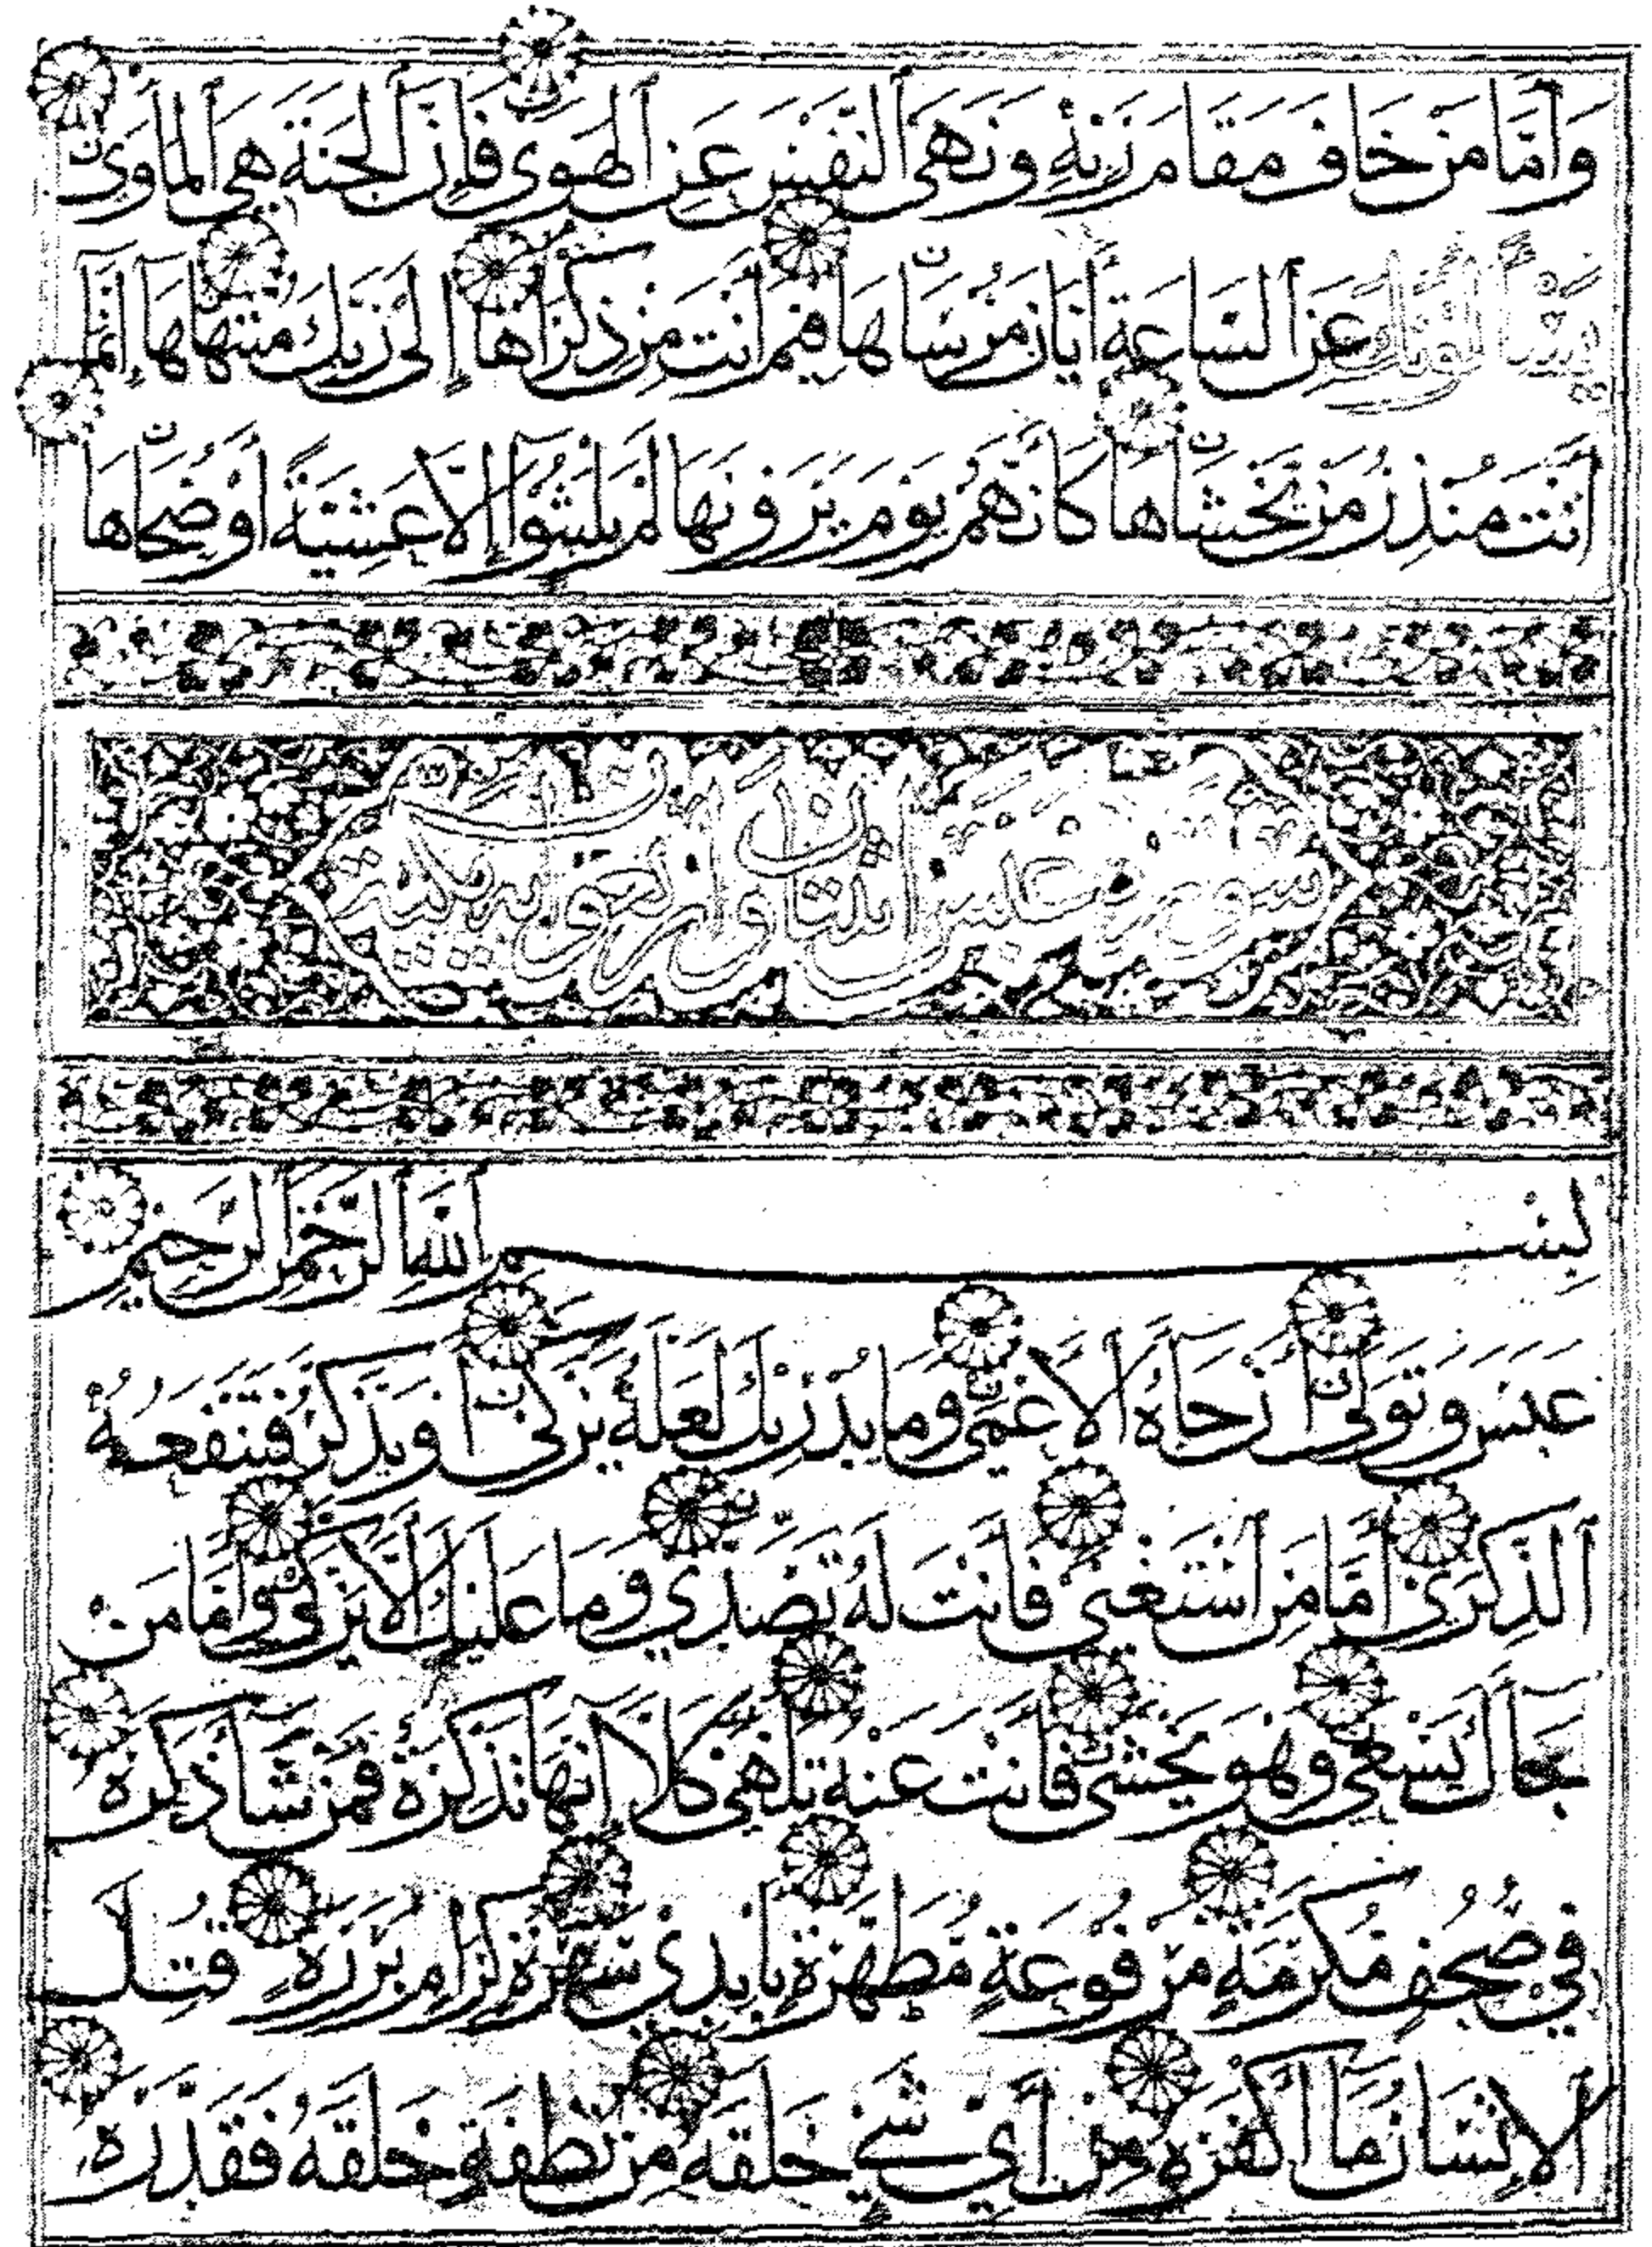 وَأَمَّا مَنْ خَافَ مَقَامَ رَبِّهِ وَنَهَى ٱلنَّفْسَ عَنِ ٱلْهَوَى فَإِنَّ ٱلْجَنَّةَ هِيَ ٱلْمَأْوَى
يَسْأَلُونَكَ عَنِ ٱلسَّاعَةِ أَيَّانَ مُرْسَاهَا فِيمَ أَنْتَ مِنْ ذِكْرَاهَا إِلَى رَبِّكَ مُنْتَهَاهَا إِنَّمَا
أَنْتَ مُنْذِرُ مَنْ يَخْشَاهَا كَأَنَّهُمْ يَوْمَ يَرَوْنَهَا لَمْ يَلْبَثُوا إِلَّا عَشِيَّةً أَوْ ضُحَاهَا
سورة عبس اثنتان واربعون اية مكية
بِسْمِ ٱللَّهِ ٱلرَّحْمَنِ ٱلرَّحِيمِ
عَبَسَ وَتَوَلَّى أَنْ جَآءَهُ ٱلْأَعْمَى وَمَا يُدْرِيكَ لَعَلَّهُ يَزَّكَّى أَوْ يَذَّكَّرُ فَتَنْفَعَهُ
ٱلذِّكْرَى أَمَّا مَنِ ٱسْتَغْنَى فَأَنْتَ لَهُ تَصَدَّى وَمَا عَلَيْكَ أَلَّا يَزَّكَّى وَأَمَّا مَنْ
جَآءَكَ يَسْعَى وَهُوَ يَخْشَى فَأَنْتَ عَنْهُ تَلَهَّى كَلَّا إِنَّهَا تَذْكِرَةٌ فَمَنْ شَآءَ ذَكَرَهُ
فِي صُحُفٍ مُكَرَّمَةٍ مَرْفُوعَةٍ مُطَهَّرَةٍ بِأَيْدِي سَفَرَةٍ كِرَامٍ بَرَرَةٍ قُتِلَ
ٱلْإِنْسَانُ مَا أَكْفَرَهُ مِنْ أَيِّ شَيْءٍ خَلَقَهُ مِنْ نُطْفَةٍ خَلَقَهُ فَقَدَّرَهُ